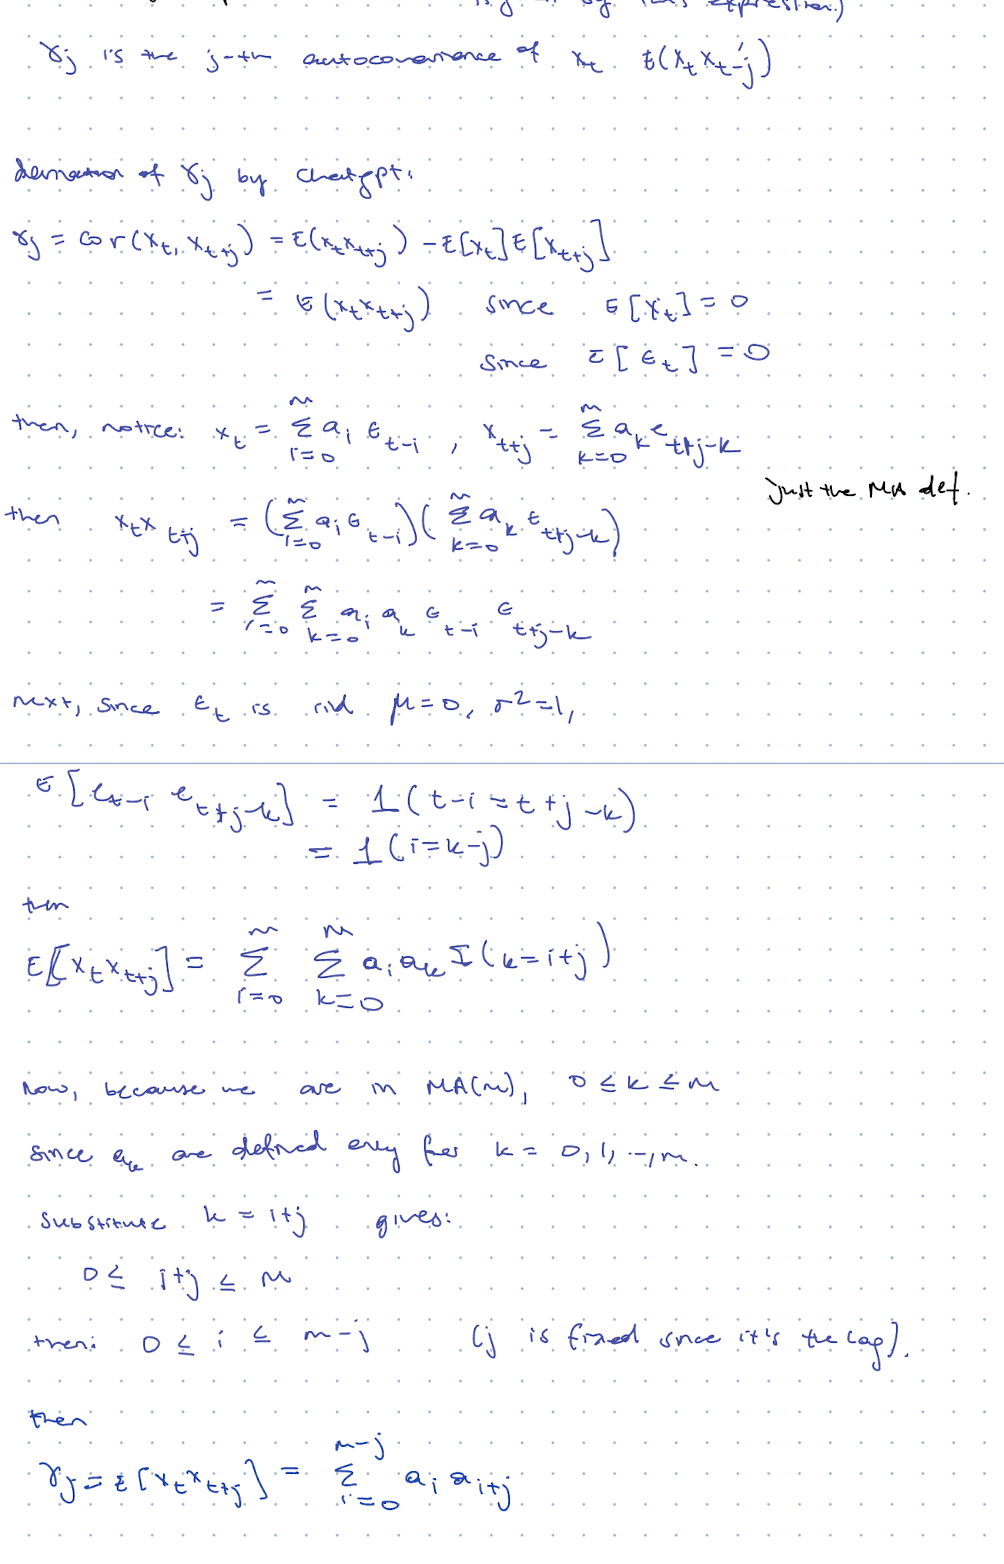 γj is the j-th autocovariance of xt E(xt xt-j')
derivation of γj by chatgpt:
γj = cov(xt, xt+j) = E(xt xt+j) - E[xt]E[xt+j]
= E(xt xt+j) since E[xt] = 0
since E[εt] = 0
then, notice: xt = Σ_{i=0}^{m} ai εt-i, xt+j = Σ_{k=0}^{m} ak et+j-k
just the MA def.
then xt xt+j = (Σ_{i=0}^{m} ai εt-i)(Σ_{k=0}^{m} ak εt+j-k)
= Σ_{i=0}^{m} Σ_{k=0}^{m} ai ak εt-i εt+j-k
next, since εt is iid μ=0, σ²=1,
E[et-i et+j-k] = 1(t-i = t+j-k)
= 1(i=k-j)
then
E[xt xt+j] = Σ_{i=0}^{m} Σ_{k=0}^{m} ai ak I(k=i+j)
now, because we are in MA(m), 0 ≤ k ≤ m
since are defined only for k = 0, 1, ..., m.
substitute k = i+j gives:
0 ≤ i+j ≤ m
then: 0 ≤ i ≤ m-j (j is fixed since it's the lag).
then
γj = E[xt xt+j] = Σ_{i=0}^{m-j} ai ai+j